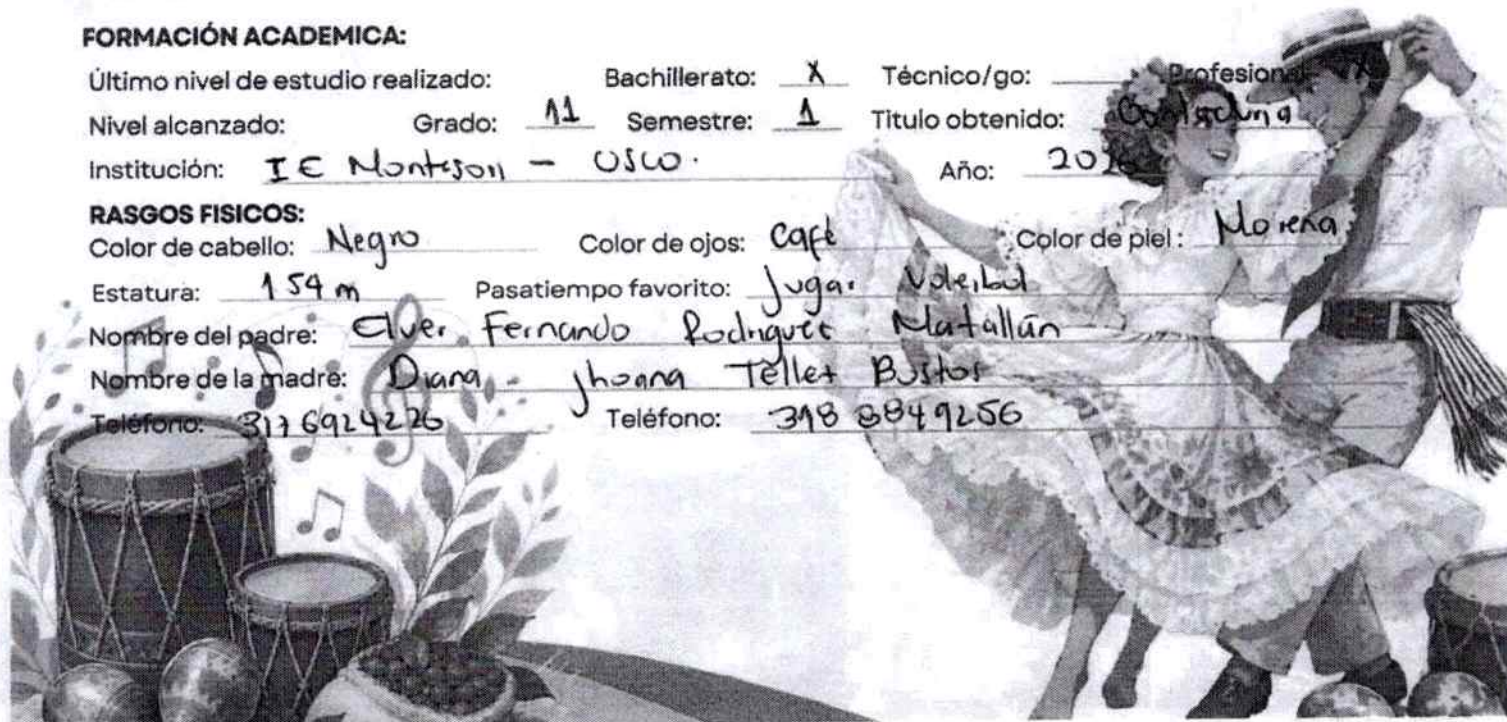 FORMACIÓN ACADEMICA:
Último nivel de estudio realizado: Bachillerato: X Técnico/go: Profesional: X
Nivel alcanzado: Grado: 11 Semestre: 1 Titulo obtenido:
Institución: I E Montesori - USCO. Año:
RASGOS FISICOS:
Color de cabello: Negro Color de ojos: Café Color de piel: Morena
Estatura: 1 54 m Pasatiempo favorito: Jugar Voleibol
Nombre del padre: Elver Fernando Rodriguez Matallán
Nombre de la madre: Diana Jhoana Téllez Bustos
Teléfono: 317 6924226 Teléfono: 318 8849256